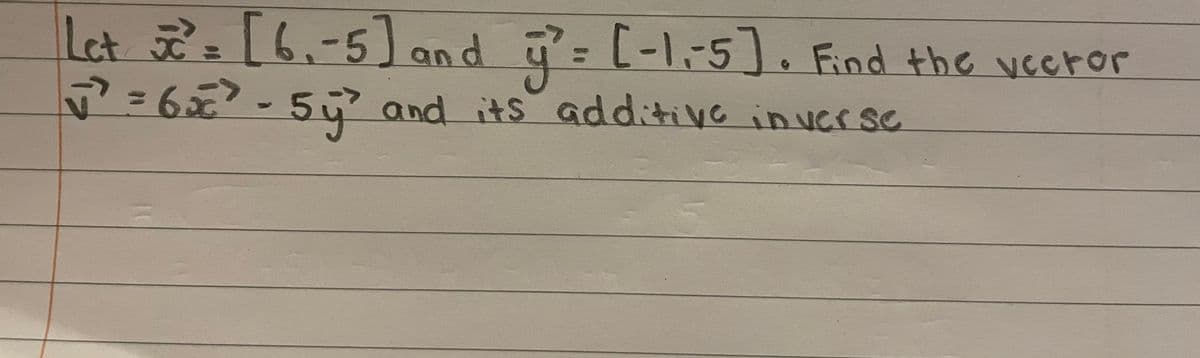 Let x⃗ = [6,-5] and y⃗ = [-1,-5]. Find the vector
v⃗ = 6x⃗ - 5y⃗ and its additive inverse